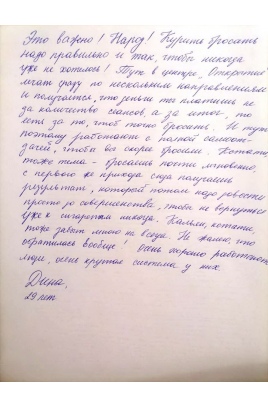 Это важно! Народ! Курить бросать
надо правильно и так, чтобы никогда
уже не хотелось! Тут в центре, Открытий
могат сразу по нескольким направлениям
и получается, что деньги ты платишь не
за количество сеансов, а за итог, то
есть за то, чтоб точно бросить. И тут
поэтому работают с полной самоот-
дачей, чтобы вы скорее бросили. Кстати,
тоже тема - бросаешь почти мгновенно,
с первого же прихода сюда получаешь
результат, который потом надо довести
просто до совершенства, чтобы не вернуться
уже к сигаретам никогда. Кальян, кстати,
тоже забыт мною на всегда. Не жалею, что
обратилась вообще! Очень хорошо работают
люди, очень крутая система у них.
Дина,
29 лет.